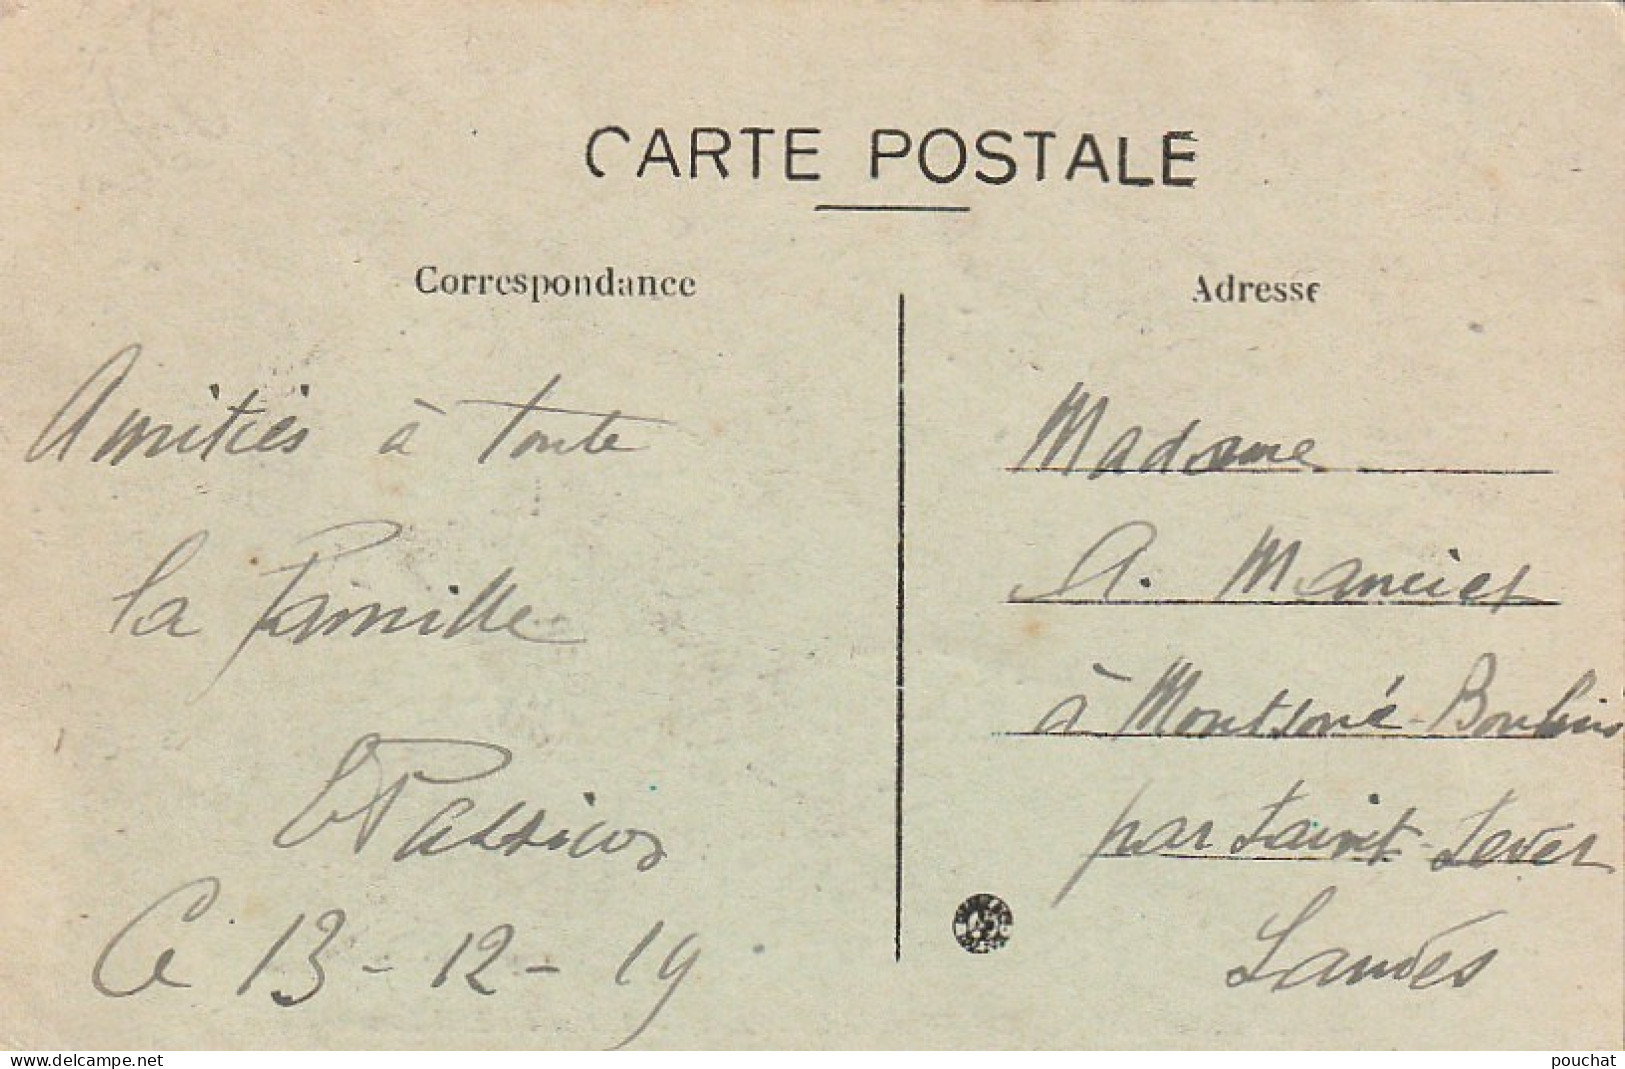 CARTE POSTALE
Correspondance
Amitiés à toute
la famille
Passicos
Ce 13-12-19
Adresse
Madame
A. Manciet
à Montsoué-Boulin
par Saint-Sever
Landes
www.delcampe.net
pouchat